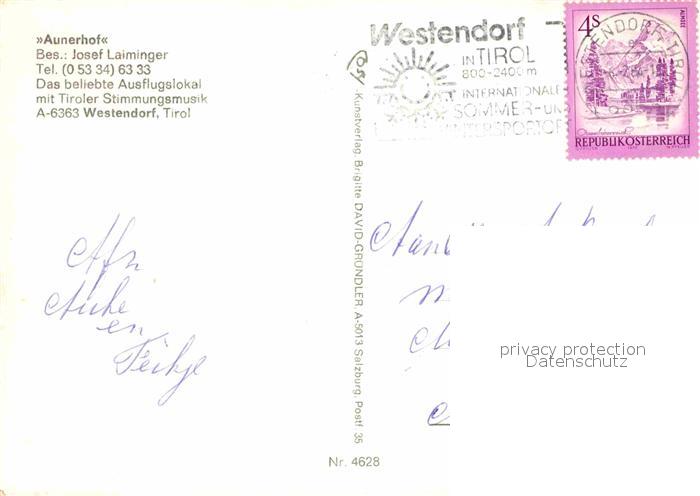 »Aunerhof«
Bes.: Josef Laiminger
Tel. (0 53 34) 63 33
Das beliebte Ausflugslokal
mit Tiroler Stimmungsmusik
A-6363 Westendorf, Tirol
Westendorf
IN TIROL
800-2400 m
INTERNATIONALE
SOMMER-UN
INTERSPORTOR
4S
ALMSEE
WESTENDORF, TIROL
REPUBLIK ÖSTERREICH
Kunstverlag Brigitte DAVID-GRÜNDLER, A-5013 Salzburg, Postf. 35
Afn
en
Aan
privacy protection
Datenschutz
Nr. 4628